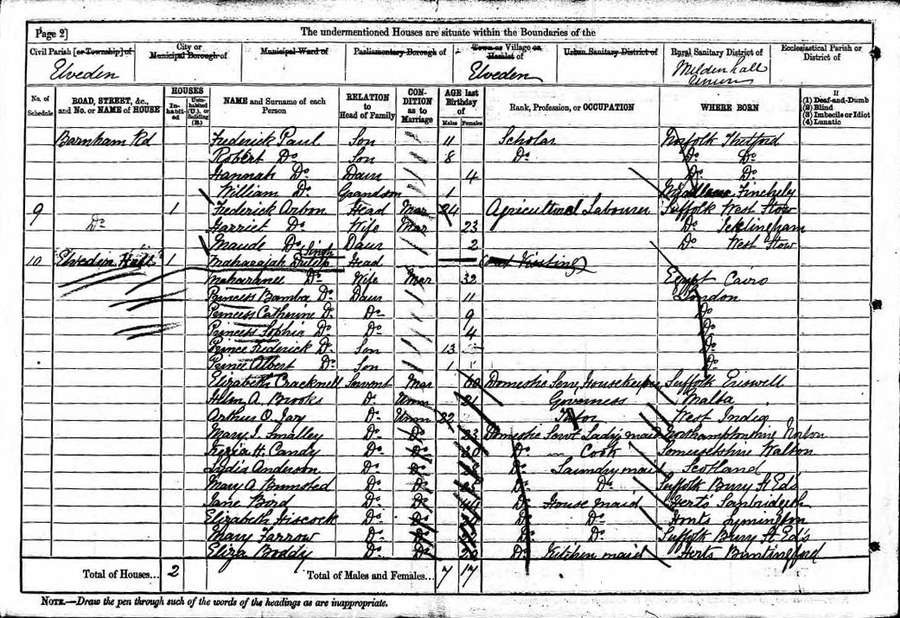 Page 2]
The undermentioned Houses are situate within the Boundaries of the
Civil Parish [or Township] of
City or Municipal Borough of
Municipal Ward of
Parliamentary Borough of
Town or Village or Hamlet of
Urban Sanitary District of
Rural Sanitary District of
Ecclesiastical Parish or District of
Elveden Elveden Mildenhall Union
No. of Schedule
ROAD, STREET, &c., and No. or NAME of HOUSE
HOUSES
Inhabited
Uninhabited (U.), or Building (B.)
NAME and Surname of each Person
RELATION to Head of Family
CONDITION as to Marriage
AGE last Birthday of
Males Females
Rank, Profession, or OCCUPATION
WHERE BORN
If
(1) Deaf-and-Dumb
(2) Blind
(3) Imbecile or Idiot
(4) Lunatic
Barnham Rd Frederick Paul Son 11 Scholar Norfolk Thetford
Robert Do Son 8 Do Do Do
Hannah Do Daur 4 Do Do
William Do Grandson 1 Finchley
9 Do 1 Frederick Arbon Head Mar 24 Agricultural Labourer Suffolk West Stow
Harriet Do Wife Mar 23 Do Icklingham
Maude Do Daur 2 Do West Stow
10 Elveden Hall 1 Maharajah Duleep Singh Head (Visiting)
Maharanee Do Wife Mar 32 Egypt Cairo
Princess Bamba Do Daur 11 London
Princess Catherine Do Do 9 Do
Princess Sophia Do Do 4 Do
Prince Frederick Do Son 13 Do
Prince Albert Do Son 1 Do
Elizabeth Cracknell Servant Mar Domestic Serv Housekeeper Suffolk Eriswell
Helen A. Brooks Do Unm 21 Governess Malta
Arthur O. Jay Do Unm 22 Tutor West Indies
Mary I. Smalley Do Do Domestic Servt Ladys maid Northamptonshire Norton
Kezia H. Candy Do Do Do Cook Somersetshire Walton
Lydia Anderson Do Do Do Laundry maid Scotland
Mary A Bumsted Do Do Do Do Suffolk Bury St Eds
Jane Bird Do Do Do House maid Herts
Elizabeth Hiscock Do Do Do Do Hants Lymington
Mary Farrow Do Do Do Do Suffolk Bury St Ed's
Eliza Boddy Do Do 20 Do Kitchen maid Herts Buntingford
Total of Houses... 2 Total of Males and Females... 7 17
NOTE.—Draw the pen through such of the words of the headings as are inappropriate.